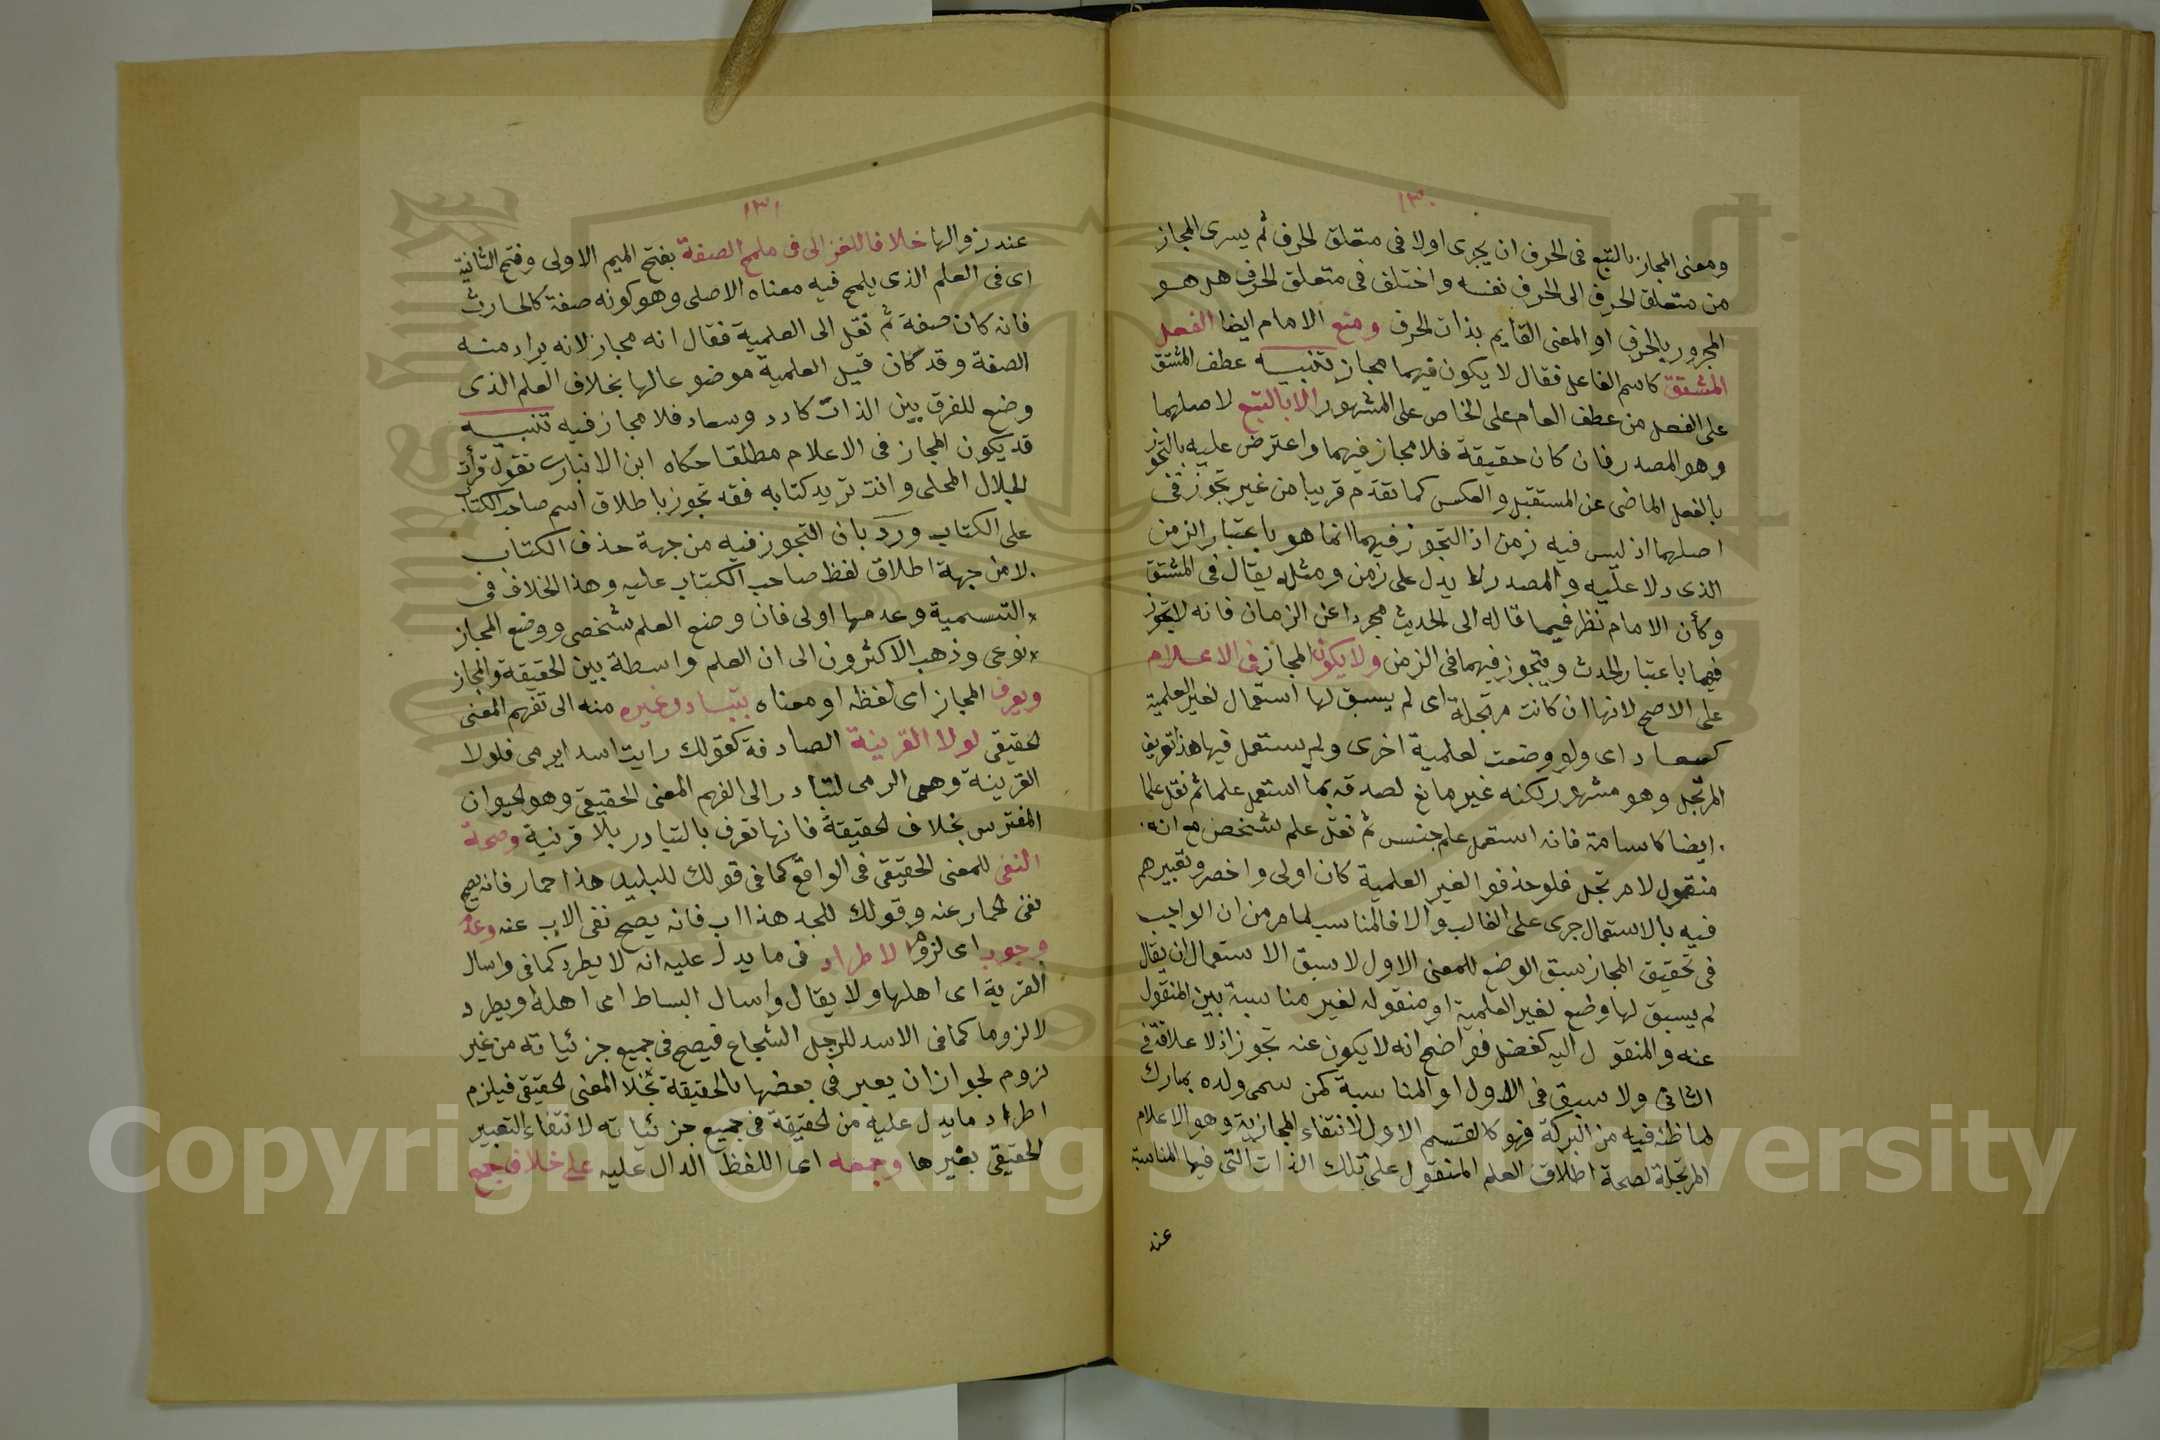 ١٣٠
ومعنى المجاز بالتبع فى الحرف ان يجرى اولا فى متعلق الحرف ثم يسرى المجاز
من متعلق الحرف الى الحرف نفسه واختلف فى متعلق الحرف هل هو
المجرور بالحرف او المعنى القايم بذات الحرف ومنع الامام ايضا الفعل
المشتق كاسم الفاعل فقال لا يكون فيهما مجاز تنبيه عطف المشتق
على الفعل من عطف العام على الخاص على المشهور الا بالتبع لاصلهما
وهو المصدر فان كان حقيقة فلا مجاز فيهما واعترض عليه بالتجوز
بالفعل الماضى عن المستقبل والعكس كما تقدم قريبا من غير تجوز فى
اصلهما اذ ليس فيه زمن اذ التجوز فيهما انما هو باعتبار الزمن
الذى دلا عليه والمصدر لا يدل على زمن ومثله يقال فى المشتق
وكأن الامام نظر فيما قاله الى الحديث مجردا عن الزمان فانه لا يتجوز
فيهما باعتبار الحدث ويتجوز فيهما فى الزمن ولا يكون المجاز فى الاعلام
على الاصح لانها ان كانت مرتجلة اى لم يسبق لها استعمال لغير العلمية
كسعاد اى ولو وضعت لعلمية اخرى ولم يستعمل فيها هذا تعريف
المرتجل وهو مشهور لكنه غير مانع لصدقه بما استعمل علما ثم نقل علما
ايضا كاسامة فانه استعمل علم جنس ثم نقل علم شخص مع انه
منقول لا مرتجل فلو حذفوا لغير العلمية كان اولى واخصر وتعبيرهم
فيه بالاستعمال جرى على الغالب والا فالمناسب لما مر من ان الواجب
فى تحقيق المجاز سبق الوضع للمعنى الاول لا سبق الاستعمال ان يقال
لم يسبق لها وضع لغير العلمية او منقوله لغير مناسبة بين المنقول
عنه والمنقول اليه كفضل فواضح انه لا يكون عنه تجوز اذ لا علاقة فى
الثانى ولا سبق فى الاول او لمناسبة كمن سمى ولده بمبارك
لما ظنه فيه من البركة فهو كالقسم الاول لانتفاء المجازية وهو الاعلام
المرتجلة لصحة اطلاق العلم المنقول على تلك الذات التى فيها المناسبة
عند
١٣١
عند زوالها خلافا للغزالى فى ملمح الصفة بفتح الميم الاولى وفتح الثانية
اى فى العلم الذى يلمح فيه معناه الاصلى وهو كونه صفة كالحارث
فانه كان صفة ثم نقل الى العلمية فقال انه مجاز لانه يراد منه
الصفة وقد كان قبل العلمية موضوعا لها بخلاف العلم الذى
وضع للفرق بين الذات كادد وسعاد فلا مجاز فيه تنبيه
قد يكون المجاز فى الاعلام مطلقا حكاه ابن الانبارى تقول قرأت
الجلال المحلى وانت تريد كتابه فقد تجوز باطلاق اسم صاحب الكتاب
على الكتاب ورد بان التجوز فيه من جهة حذف الكتاب
لا من جهة اطلاق لفظ صاحب الكتاب عليه وهذا الخلاف فى
التسمية وعدمها اولى فان وضع العلم شخصى ووضع المجاز
نوعى وذهب الاكثرون الى ان العلم واسطة بين الحقيقة والمجاز
ويعرف المجاز اى لفظه او معناه بتبادر غيره منه الى تفهم المعنى
الحقيقى لولا القرينة الصادفة كقولك رايت اسدا يرمى فلولا
القرينة وهى الرمى لتبادر الى الفهم المعنى الحقيقى وهو الحيوان
المفترس بخلاف الحقيقة فانها تعرف بالتبادر بلا قرنية وصحة
النفى للمعنى الحقيقى فى الواقع كما فى قولك للبليد هذا حمار فانه يصح
نفى الحمار عنه وقولك للجد هذا اب فانه يصح نفى الاب عنه وعدم
وجوب اى لزوم الاطراد فى ما يدل عليه انه لا يطرد كما فى واسال
القرية اى اهلها ولا يقال واسال البساط اى اهله ويطرد
لا لزوما كما فى الاسد للرجل الشجاع فيصح فى جميع جزئياته من غير
لزوم لجواز ان يعبر فى بعضها بالحقيقة بخلا المعنى الحقيقى فيلزم
اطراد ما يدل عليه من الحقيقة فى جميع جزئياته لانتفاء التعبير
الحقيقى بغيرها وجمعه اى اللفظ الدال عليه على خلاف جمع
Copyright © King Saud University